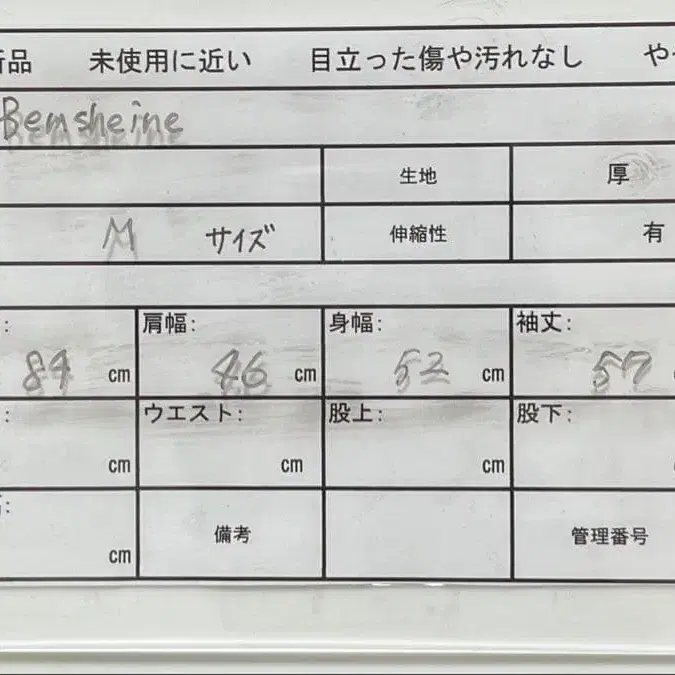 新品 未使用に近い 目立った傷や汚れなし や
Bemsheine
生地 厚
M サイズ 伸縮性 有
: 84 cm 肩幅: 46 cm 身幅: 52 cm 袖丈: 57
: cm ウエスト: cm 股上: cm 股下:
: cm 備考 管理番号